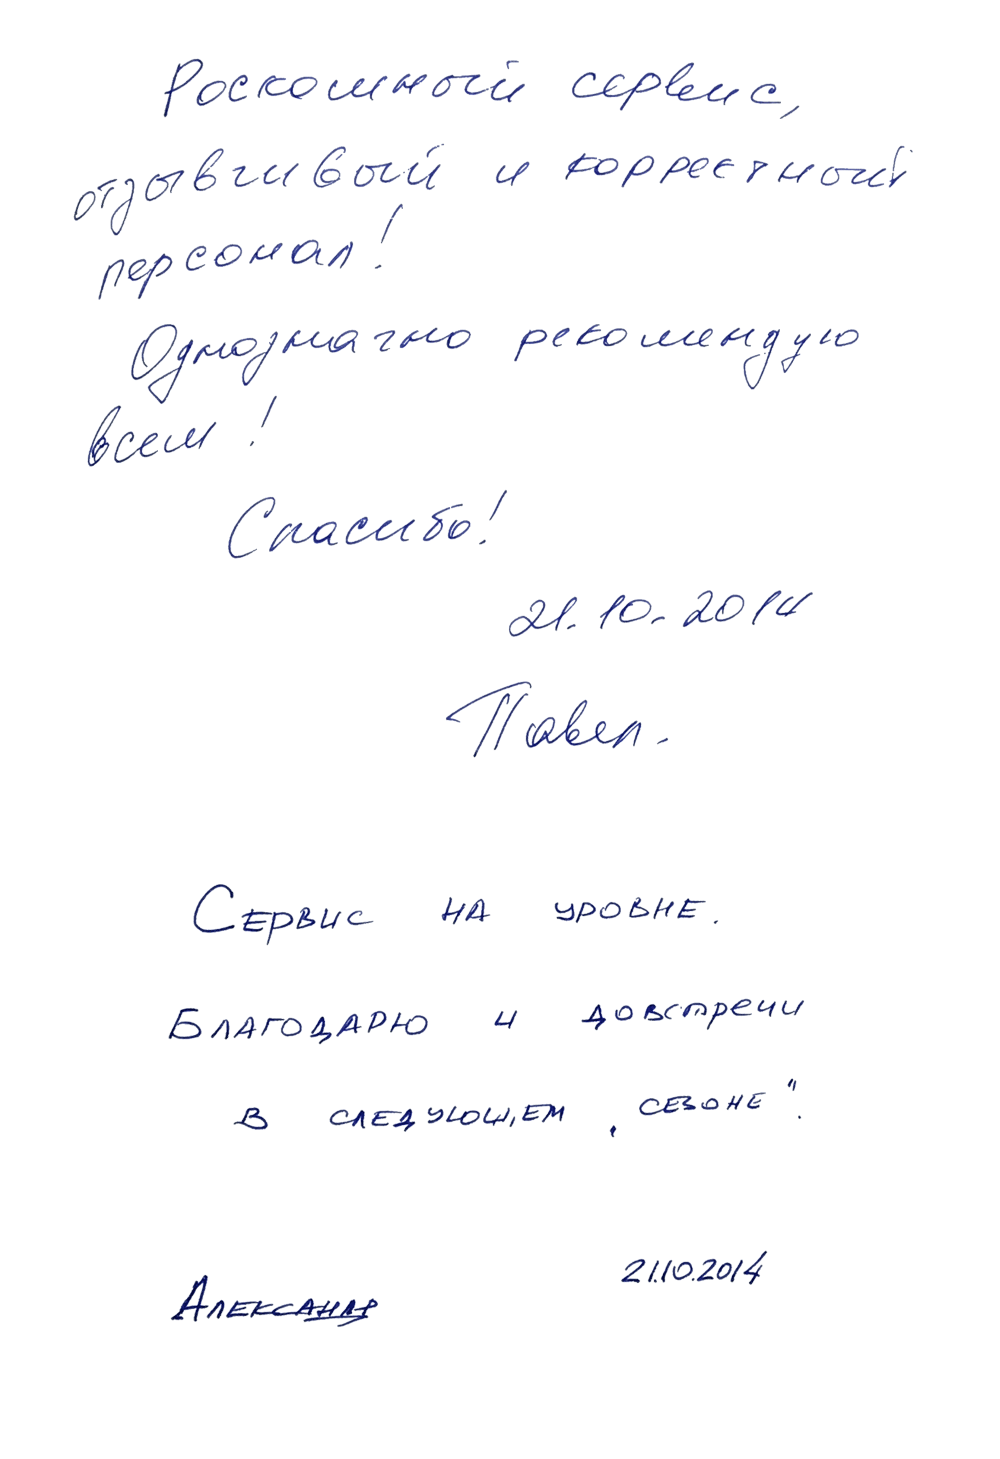 Роскошный сервис,
отзывчивый и корректный
персонал!
Однозначно рекомендую
всем!
Спасибо!
21.10.2014
Павел.
Сервис на уровне.
Благодарю и довстречи
в следующем „сезоне".
Александр
21.10.2014